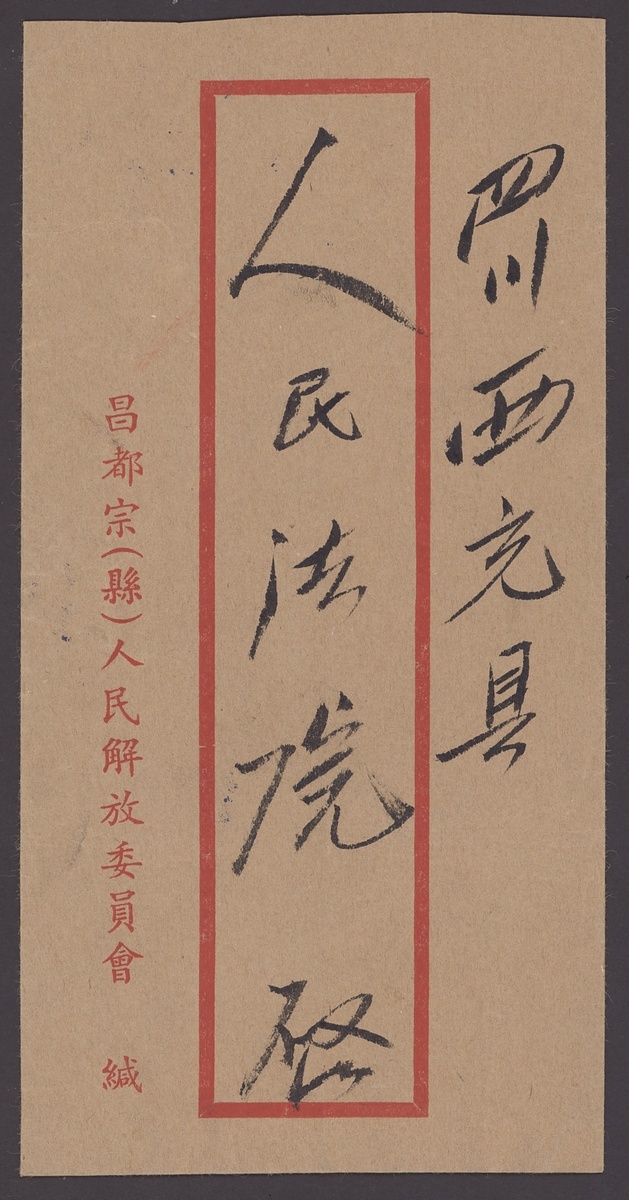 四川西充县
人民法院 啟
昌都宗(縣)人民解放委員會 緘